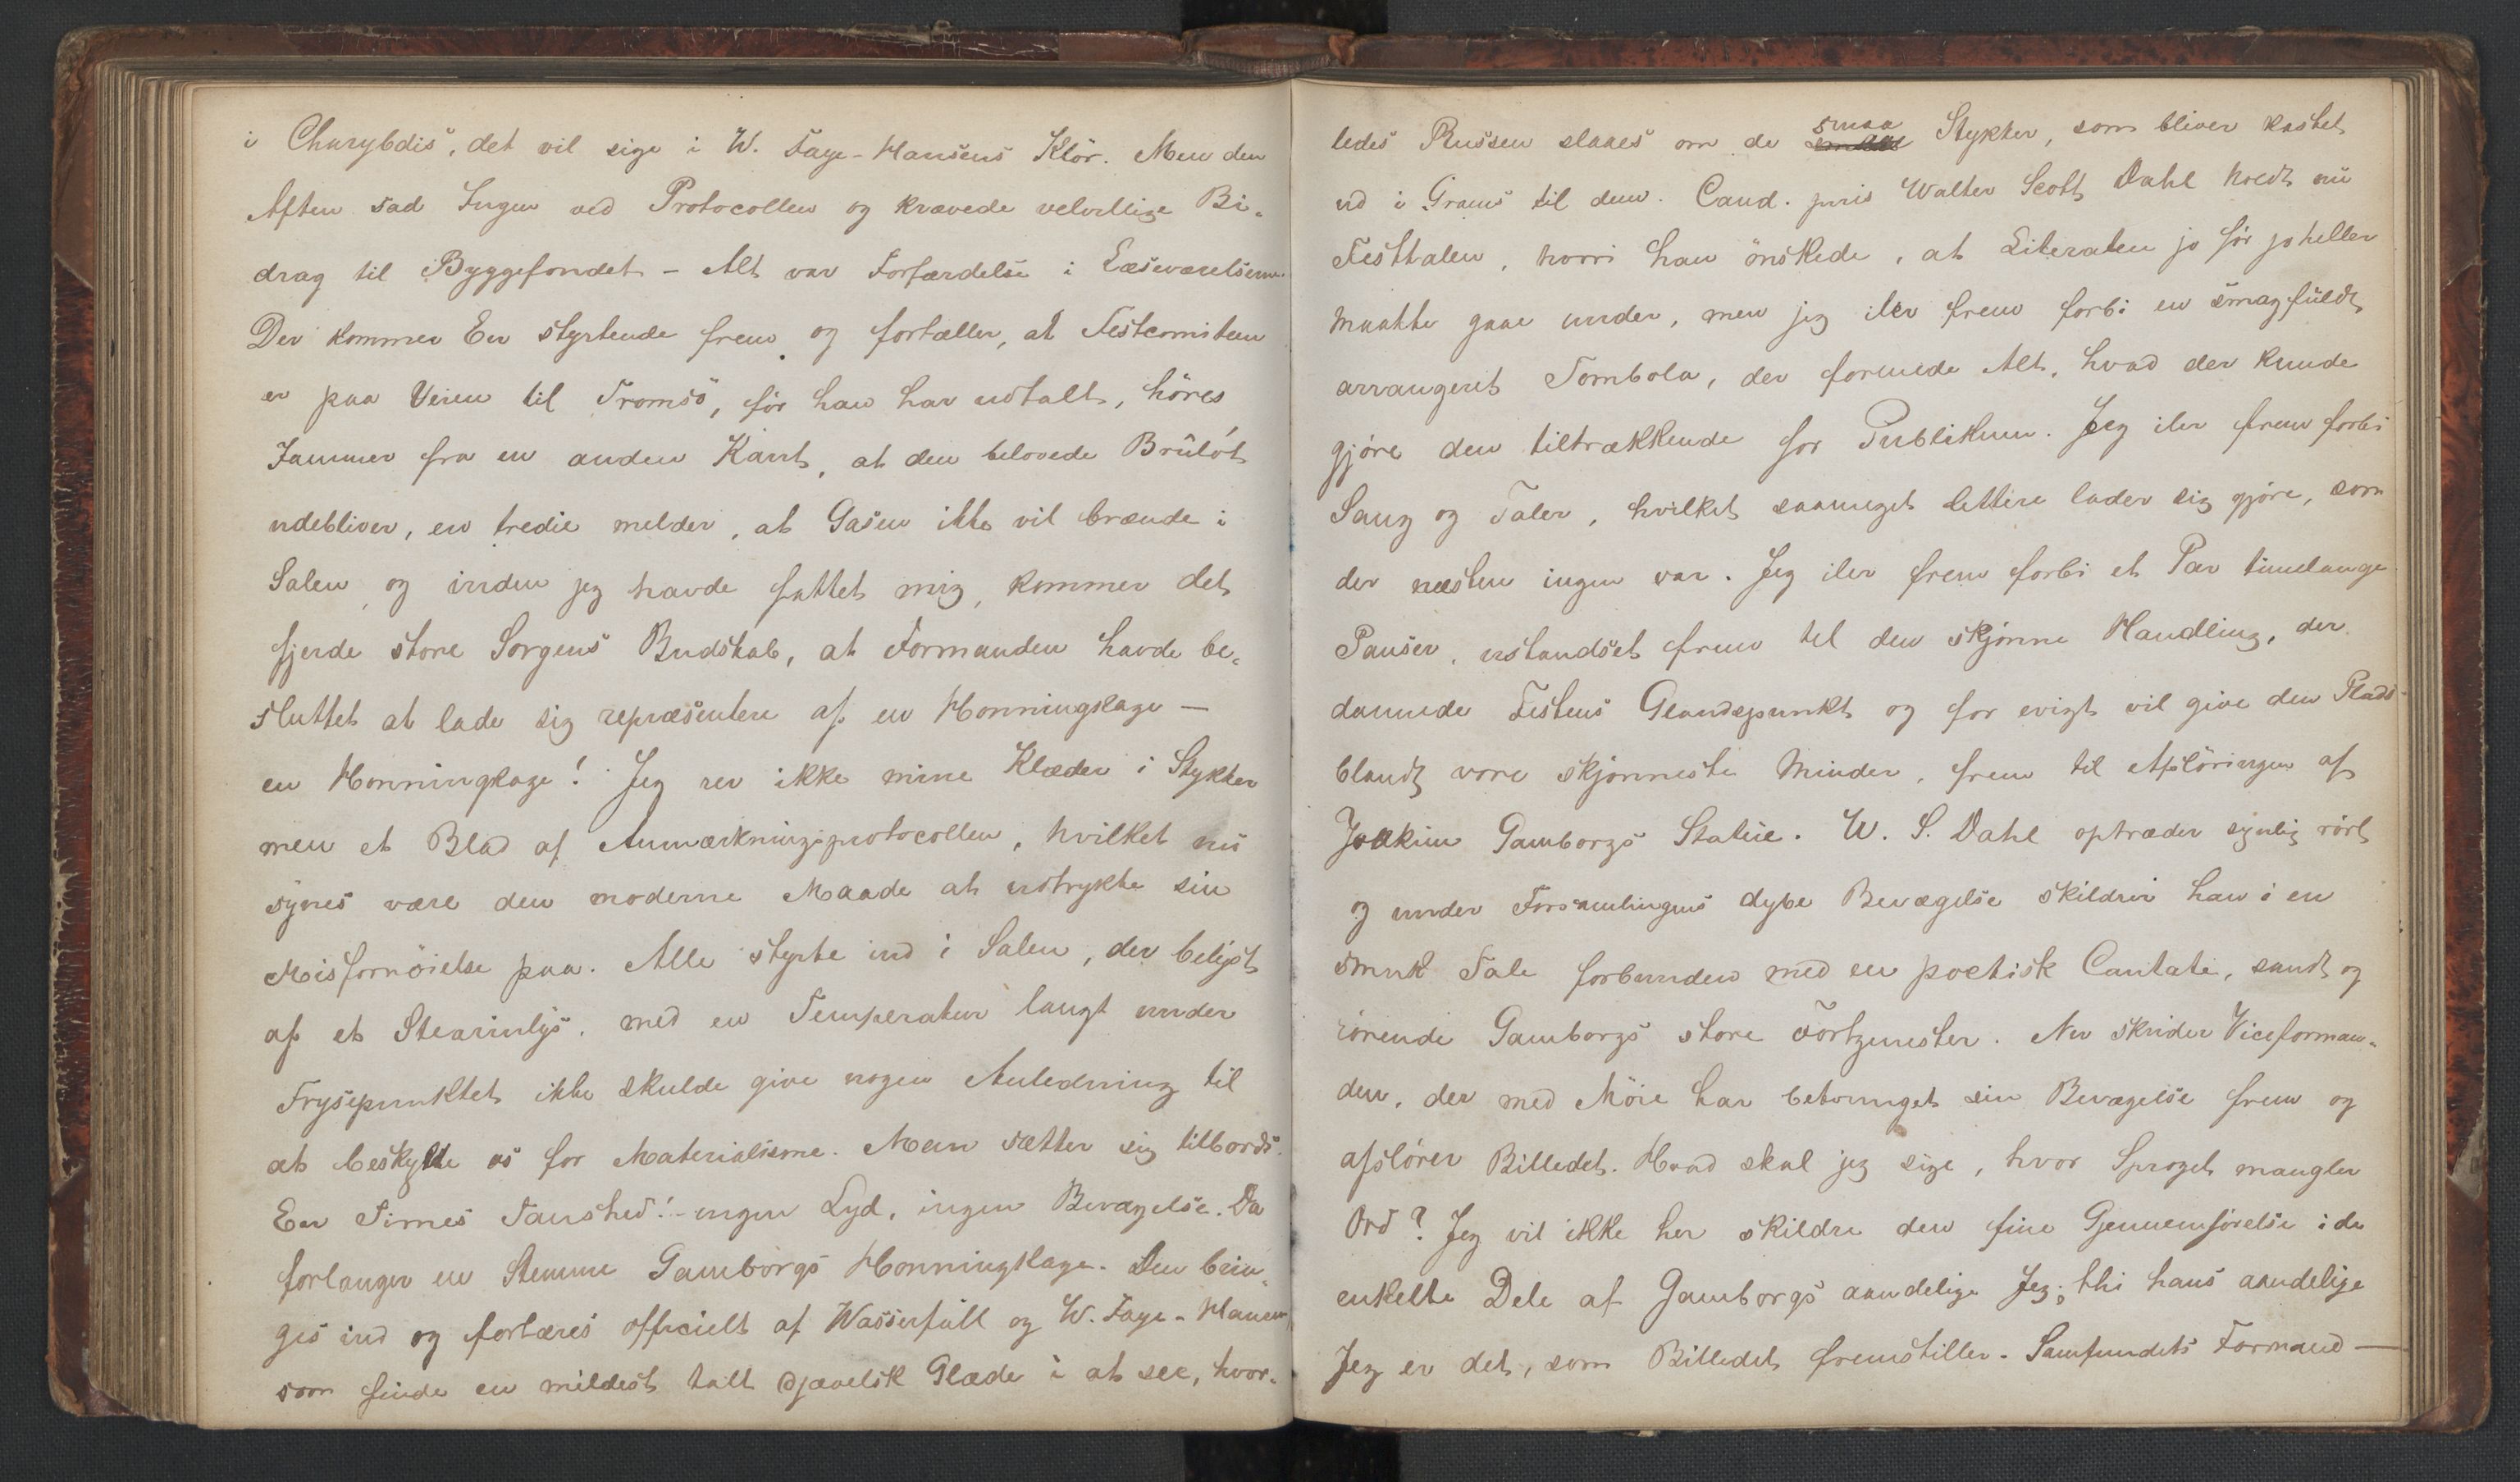 i Charybdis, det vil sige i W. Faye-Hansens Klör. Men den
Aften sad Ingen ved Protocollen og krævede velvillige Bi-
drag til Byggefondet – Alt var Forfærdelse i Læseværelserne.
Der kommer En styrtende frem og fortæller, at Festcomiteen
er paa Veien til Tromsö, før han har udtalt, höres
Jammer fra en anden Kant, at den belovede Brûlót
udebliver, en tredie melder, at Gasen ikke vil brænde i
Salen, og inden jeg havde fattet mig, kommer det
fjerde store Sorgens Budskab, at Formanden havde be-
sluttet at lade sig repræsentere af en Honningkage –
en Honningkage! Jeg rev ikke mine Klæder i Stykker
men et Blad af Anmærkningsprotocollen, hvilket nu
synes være den moderne Maade at udtrykke sin
Misfornöielse paa. Alle styrte ind i Salen, der belyst
af et Stearinlys, med en Temperatur langt under
Frysepunktet ikke skulde give nogen Anledning til
at beskylde os for Materialisme. Man sætter sig tilbords.
En Times Taushed! – ingen Lyd, ingen Bevægelse. Da
forlanger en Stemme Gamborgs Honningkage. Den brin-
ges ind og fortæres officielt af Wasserfall og W. Faye-Hansen
som finde en mildest talt djævelsk Glæde i at see, hvor-
ledes Russen slaaes om de smaa Stykker, som bliver kastet
ud i Grams til dem. Cand. juris Walter Scott Dahl holdt nu
Festtalen, hvori han önskede, at Literaten jo för jo heller
maatte gaae under, men jeg iler frem forbi en smagfuldt
arrangeret Tombola, der forenede Alt, hvad der kunde
gjöre den tiltrækkende for Publikum. Jeg iler frem forbi
Sang og Taler, hvilket saameget lettere lader sig gjöre, som
der næsten ingen var. Jeg iler frem forbi et Par timelange
Pauser, ustandset frem til den skjönne Handling, der
dannede Festens Glandspunkt og for evigt vil give den Plads
blandt vore skjönneste Minder, frem til Afslöringen af
Joakim Gamborgs Statüe. W. S. Dahl optræder synlig rört
og under Forsamlingens dybe Bevægelse skildrer han i en
smuk Tale forbunden med en poetisk Cantate, sandt og
rörende Gamborgs store Fortjenester. Nu skrider Viceforman-
den, der med Möie har betvunget sin Bevægelse frem og
afslörer Billedet. Hvad skal jeg sige, hvor Sproget mangler
Ord? Jeg vil ikke her skildre den fine Gjennemförelse i de
enkelte Dele af Gamborgs aandelige Jeg; thi hans aandelige
Jeg er det, som Billedet fremstiller. Samfundets Formand –